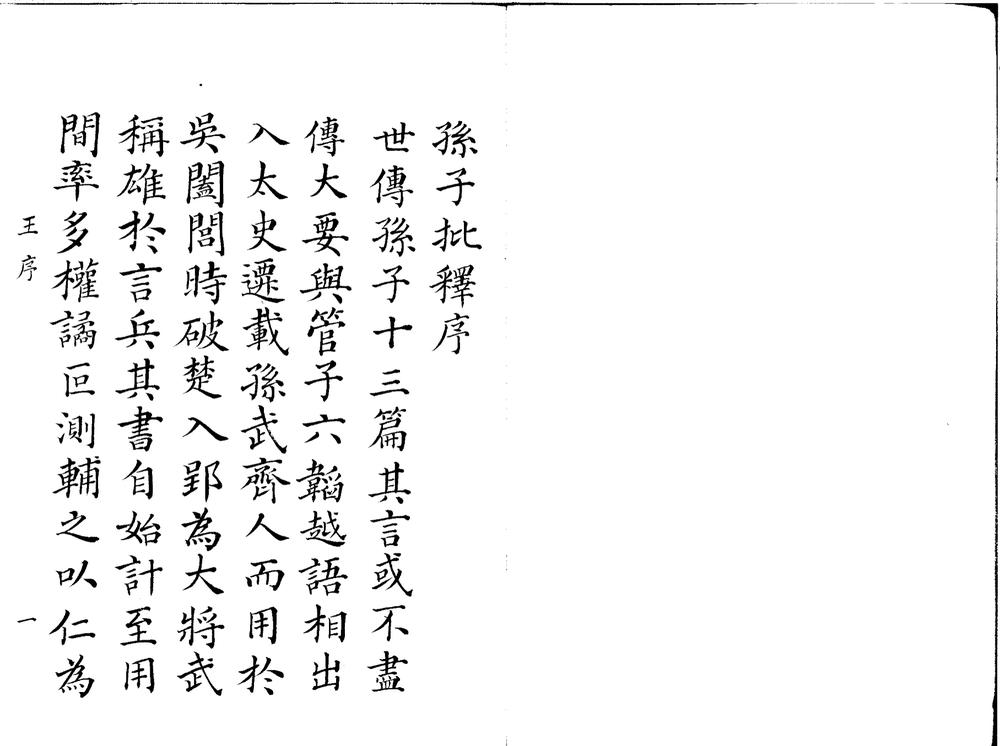 孫子批釋序
世傳孫子十三篇其言或不盡
傳大要與管子六韜越語相出
入太史遷載孫武齊人而用於
吳闔閭時破楚入郢為大將武
稱雄於言兵其書自始計至用
間率多權譎叵測輔之以仁為
王序
一